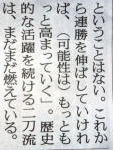 ということはない。これか
ら連勝を伸ばしていけれ
ば、（可能性は）もっとも
っと高まっていく」。歴史
的な活躍を続ける二刀流
は、まだまだ燃えている。